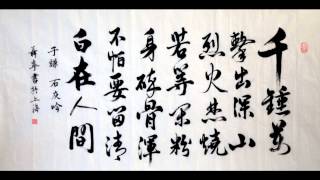 千錘萬
擊出深山
烈火焚燒
若等閑粉
身碎骨渾
不怕要留清
白在人間
于謙 石灰吟
書於上海